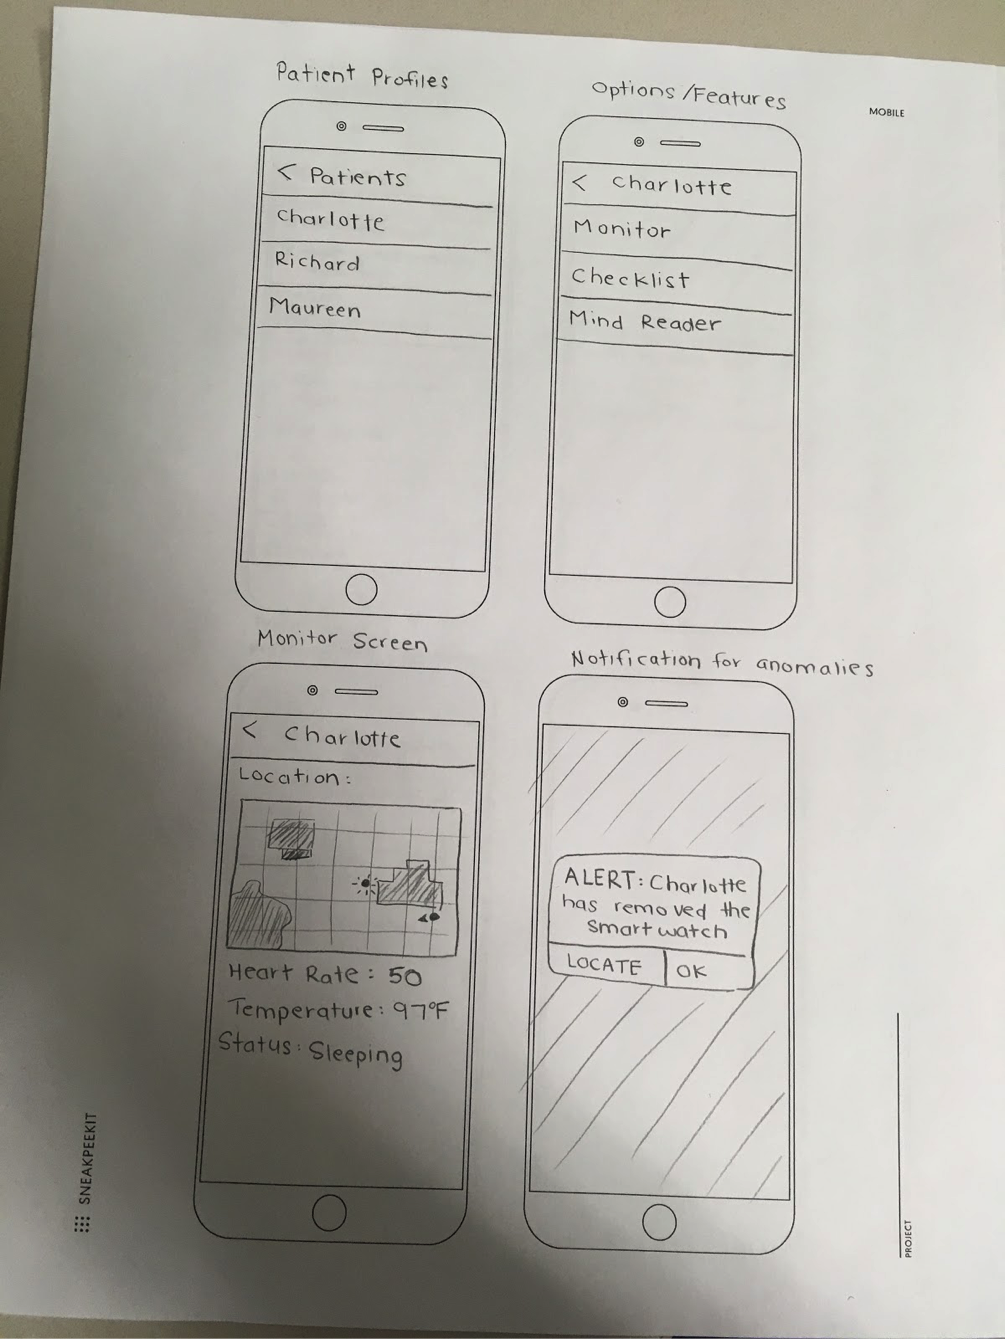 Patient Profiles
< Patients
Charlotte
Richard
Maureen
Options/Features
< Charlotte
Monitor
Checklist
Mind Reader
MOBILE
Monitor Screen
< Charlotte
Location:
Heart Rate: 50
Temperature: 97°F
Status: Sleeping
Notification for anomalies
ALERT: Charlotte
has removed the
smartwatch
LOCATE
OK
SNEAKPEEKIT
PROJECT